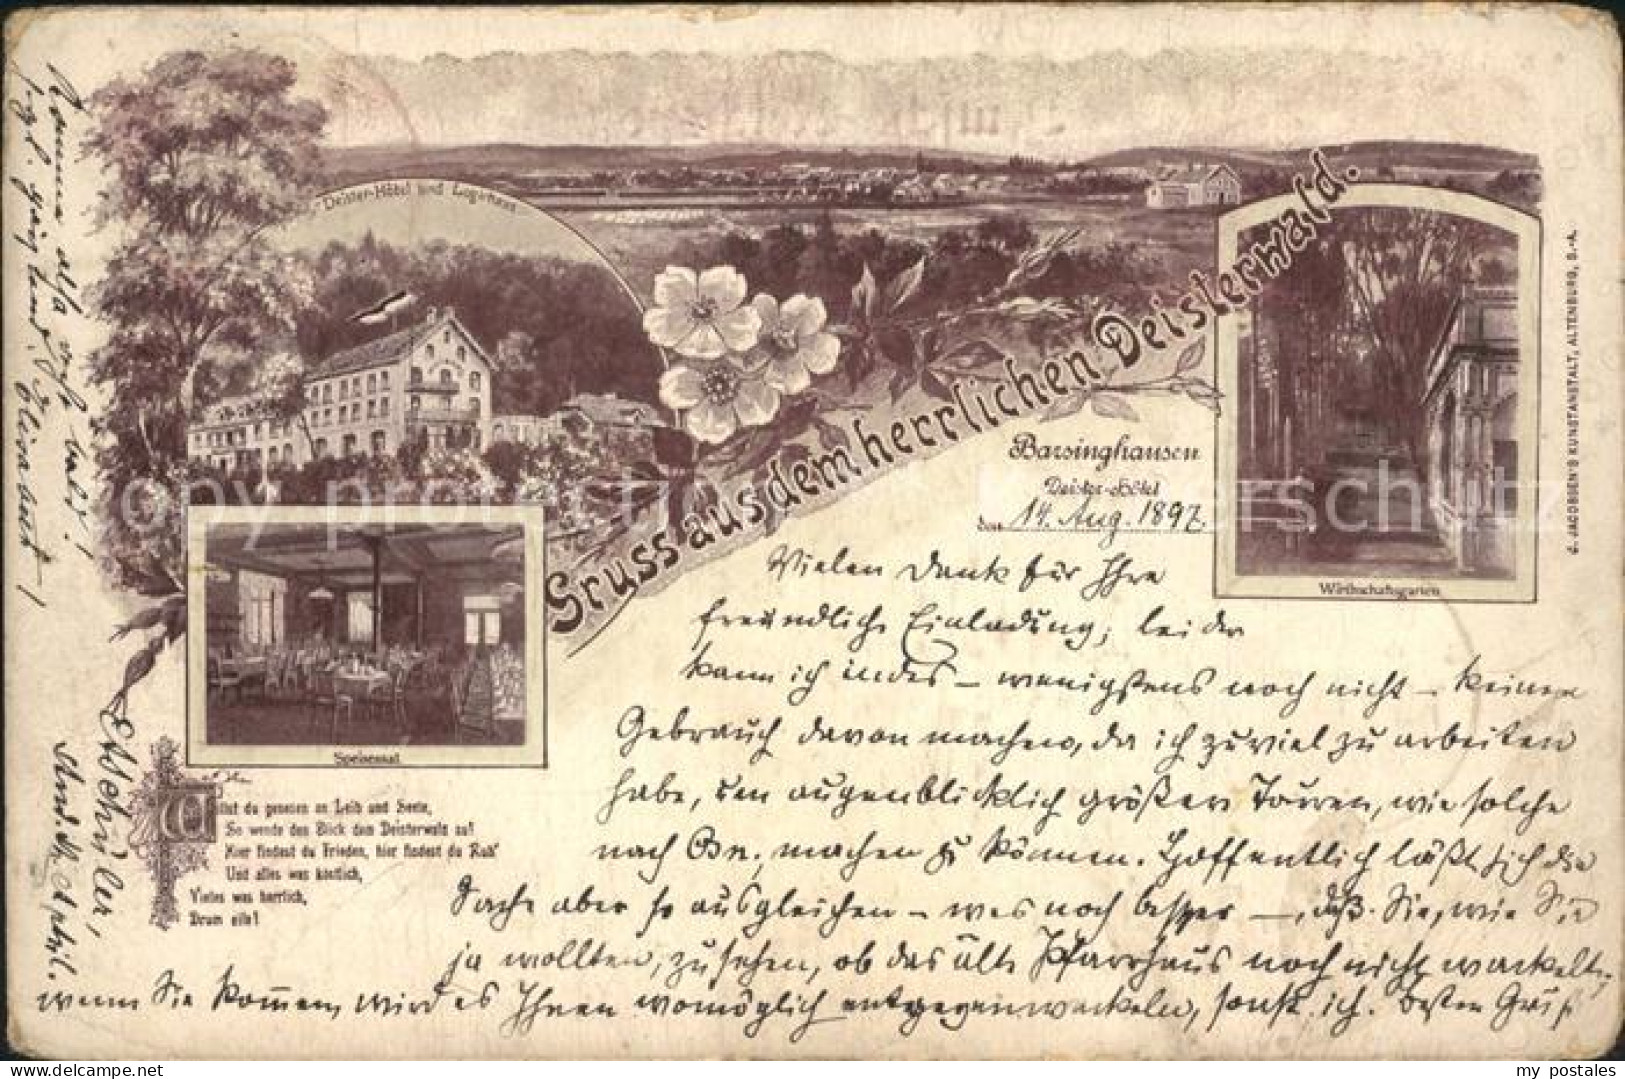 Deister-Hôtel und Logirhaus
Gruss aus dem herrlichen Deisterwald.
Barsinghausen
Deister-Hôtel
den 14. Aug. 1897.
Wirthschaftsgarten
Speisesaal
J. JACOBSEN'S KUNSTANSTALT, ALTENBURG, S.-A.
Willst du genesen an Leib und Seele,
So wende den Blick dem Deisterwald zu!
Hier findest du Frieden, hier findest du Ruh'
Und alles was köstlich,
Vieles was herrlich,
Drum eile!
Vielen Dank für Ihre
freundliche Einladung; leider
kann ich indes – wenigstens noch nicht – keinen
Gebrauch davon machen, da ich zuviel zu arbeiten
habe, um augenblicklich größere Touren, wie solche
nach Bn. machen zu können. Hoffentlich läßt sich die
Sache aber so ausgleichen – was noch besser –, daß Sie, wie Sie
ja wollten, zusehen, ob das alte Pfarrhaus noch nicht wackelt;
wenn Sie kommen, wird es Ihnen womöglich entgegenwackeln, sonst ich. Besten Gruß
Komme also recht bald!
Elisabeth
copyright protection Urheberschutz
my_postales